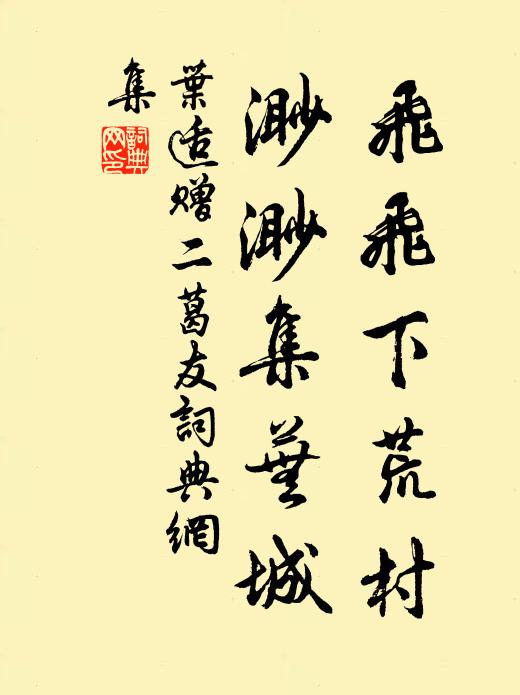 飛飛下荒村
渺渺集蕪城
葉适贈二葛友詞典網
集
詞典
网印